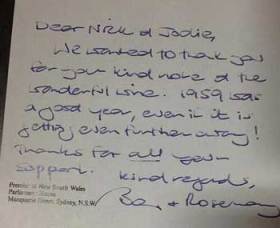 Dear Nick & Jodie,
We wanted to thank you
for your kind note & the
wonderful wine. 1959 was
a good year, even if it is
getting even further away!
Thanks for all your
support.
Kind regards,
Premier of New South Wales
Parliament House
Macquarie Street, Sydney, N.S.W.
+ Rosemary